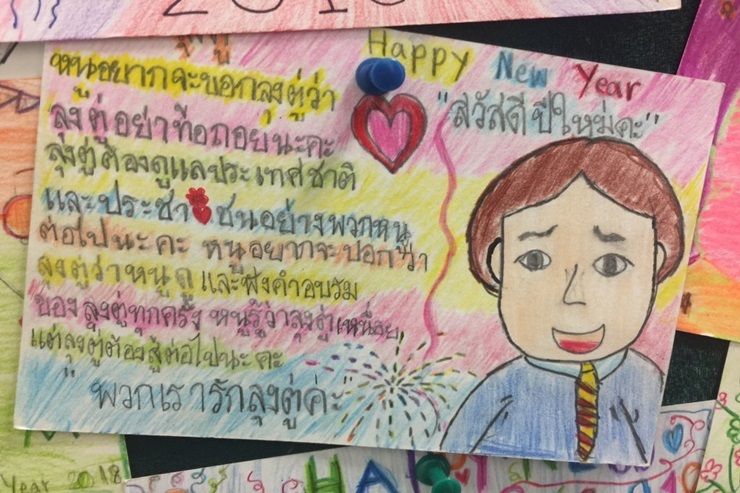 Happy New Year
"สวัสดีปีใหม่คะ"
หนูอยากจะบอกลุงตู่ว่า
ลุงตู่อย่าท้อถอยนะคะ
ลุงตู่ต้องดูแลประเทศชาติ
และประชาชนอย่างพวกหนู
ต่อไปนะคะ หนูอยากจะบอกว่า
ลุงตู่ว่าหนูดูและฟังคำอบรม
ของลุงตู่ทุกครั้ง หนูรู้ว่าลุงตู่เหนื่อย
แต่ลุงตู่ต้องสู้ต่อไปนะคะ
"พวกเรารักลุงตู่ค่ะ"
Year 2018